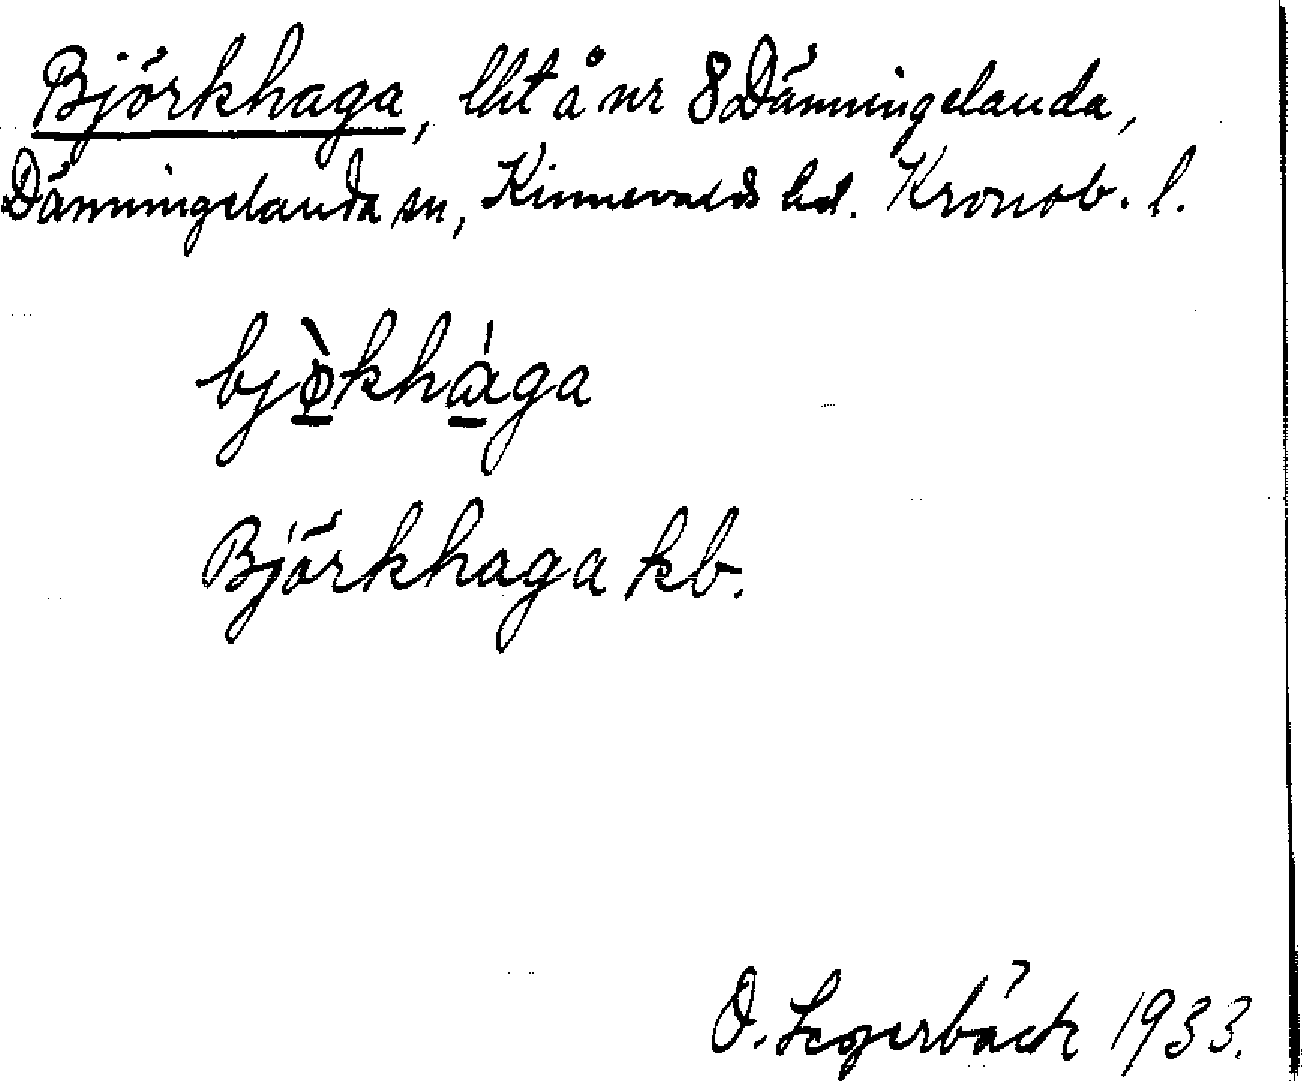 Björkhaga, lht å nr 8 Dänningelanda,
Dänningelanda sn, Kinnevalds hd. Kronob. l.
bjø̀khága
Björkhaga kb.
O. Segerbäck 1933.